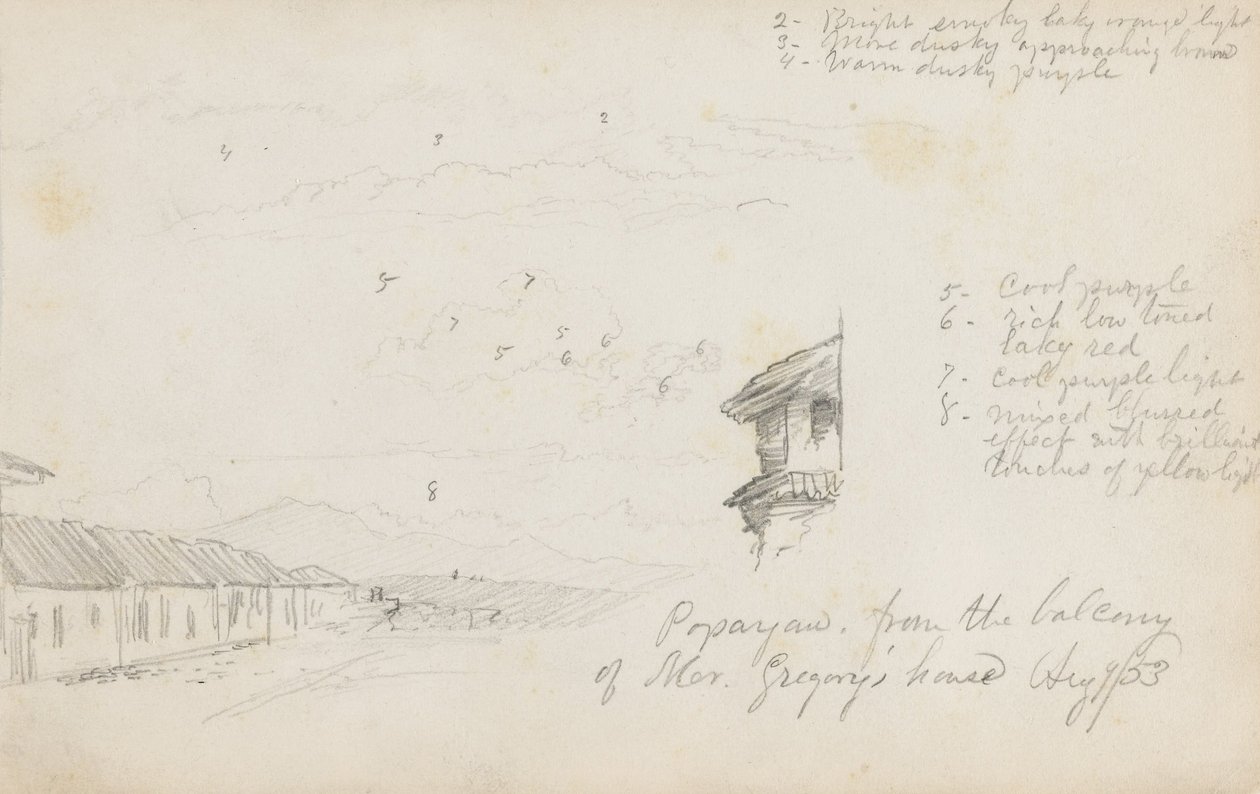 2 - Bright smoky laky orange light
3 - More dusky approaching brown
4 - Warm dusky purple
2
3
4
5
7
7
5
6
5
6
6
6
5 - Cool purple
6 - rich low toned
laky red
7 - cool purple light
8 - mixed blurred
effect with brilliant
touches of yellow light
8
Popayan. from the balcony
of Mr. Gregory's house Aug /53